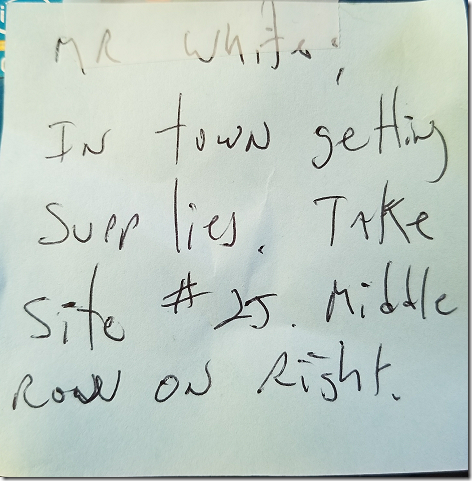 MR White;
IN town getting
supplies. TAKE
Site # 25. Middle
ROW ON Right.